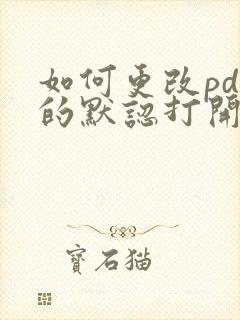 如何更改pd
的默認打開
寶石猫